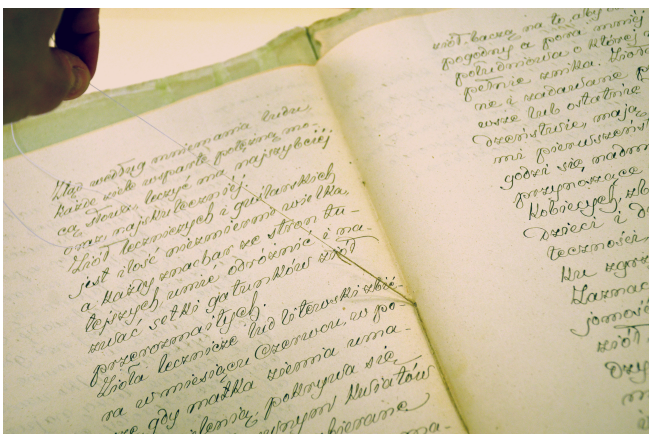 Ztąd według mniemania ludu,
każde zioło wsparte potężną mo-
cą słowa, leczyć ma najszybciej
oraz najskuteczniej.
Ziół leczniczych i guślarskich
jest ilość niezmiernie wielka,
a każdy znachor ze stron tu-
tejszych, umie odróżnić i na-
zwać setki gatunków ziół
przerozmaitych.
Zioła lecznicze lud litewski zbie-
ra w miesiącu Czerwcu, w po-
rze gdy matka ziemia uma-
zielenią, pokrywa się
kwiatów
ma-
ziół. bacząc na to, aby
pogodny a pora mniej
południowa o której
pełnie znika. Zioła
ne i zadawane
wsze lub ostatnie
Dzeństwie, mają
mi pierwszeńst
godzi się nadm
przynoszące
Kobiecych, zb
Dzieci i d
teczności,
Ku zgrz
Zaznac
jomość
ziół